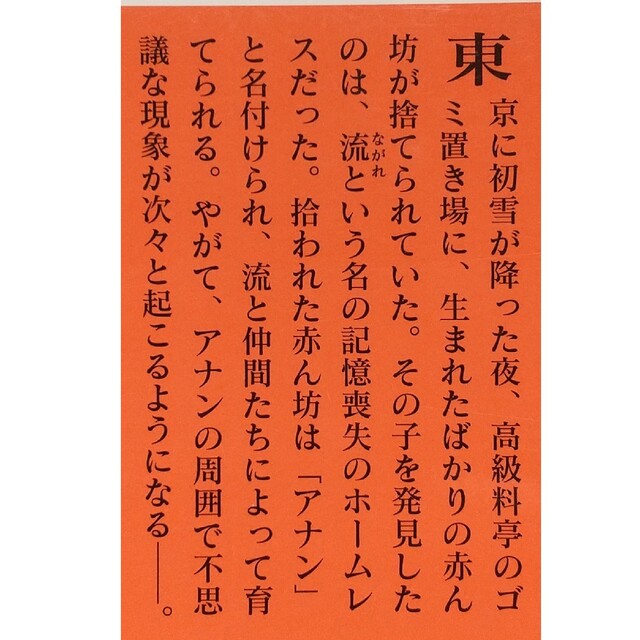 東京に初雪が降った夜、高級料亭のゴ
ミ置き場に、生まれたばかりの赤ん
坊が捨てられていた。その子を発見した
のは、流という名の記憶喪失のホームレ
ながれ
スだった。拾われた赤ん坊は「アナン」
と名付けられ、流と仲間たちによって育
てられる。やがて、アナンの周囲で不思
議な現象が次々と起こるようになる――。